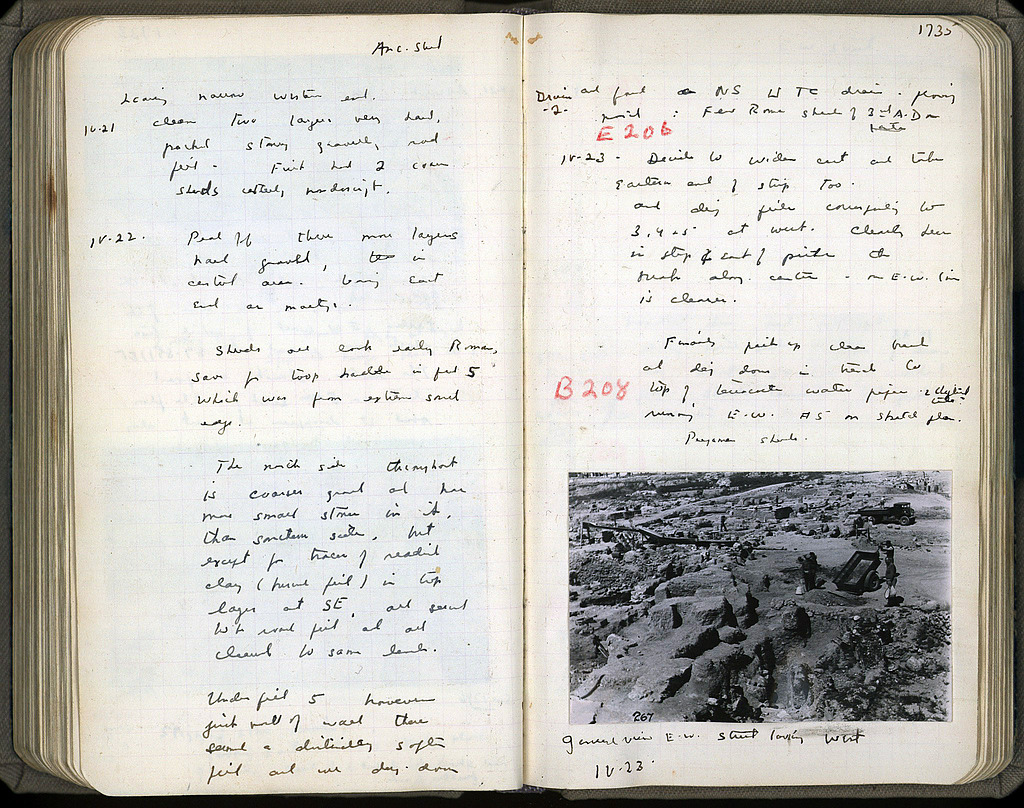 Anc. Street
Leaving narrow western end.
IV.21 clean two layers very hard,
packed stony gravelly road
fill - First had 2 coarse
sherds utterly nondescript.
IV.22. Peel off three more layers
hard gravel, in
central area. Leaving East
end as
Sherds all look early Roman,
save for loop handle in fill 5
which was from extreme south
edge.
The north side throughout
is coarser gravel and has
more small stones in it,
than southern side, but
except for traces of reddish
clay ( fill) in top
layer at SE, all seems
to be road fill and all
cleared to same level.
Under fill 5 however
just north of wall there
seemed a distinctly softer
fill and we dug down
1735
Drain and found a NS W TC drain.
-2- : Few Rom sherds of 3rd A.D on
E 206
IV-23 - Decide to widen cut and take
Eastern end of strip too.
and dig fills corresponding to
3, 4 and 5 at west. Clearly seen
in strip east of the
along centre - an E.W. line
is clearer.
Finally pick up clear
and dig down in trench to
B 208 top of terracotta water pipe
running E-W. AS on sketch plan.
sherds.
267
General view E-W. street looking West
IV-23.